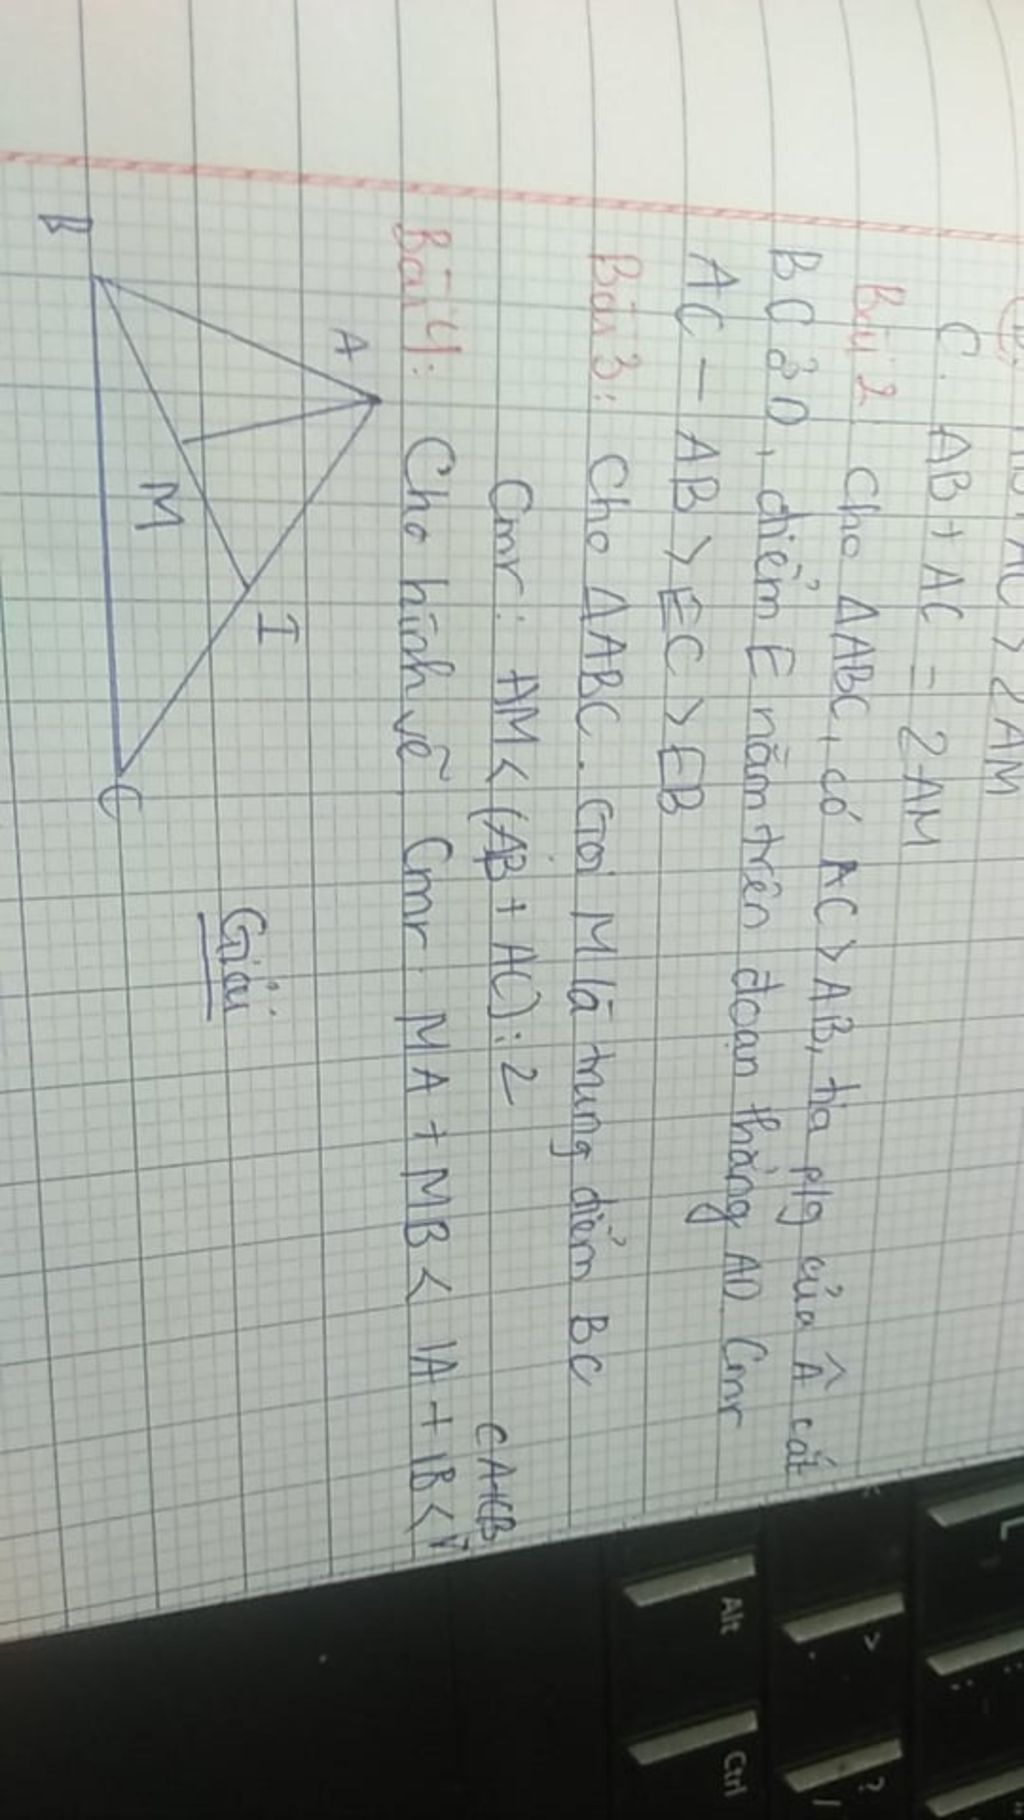 AB + AC > 2AM
C. AB + AC = 2AM
Bài 2 Cho ΔABC, có AC > AB, tia p/g của Â cắt
BC ở D, điểm E nằm trên đoạn thẳng AD. Cmr
AC - AB > EC > EB
Bài 3: Cho ΔABC. Gọi M là trung điểm BC
Cmr: AM < (AB + AC) : 2
CA+CB
Bài 4: Cho hình vẽ Cmr: MA + MB < IA + IB <
A
I
M
B
C
Giải
Alt
Ctrl